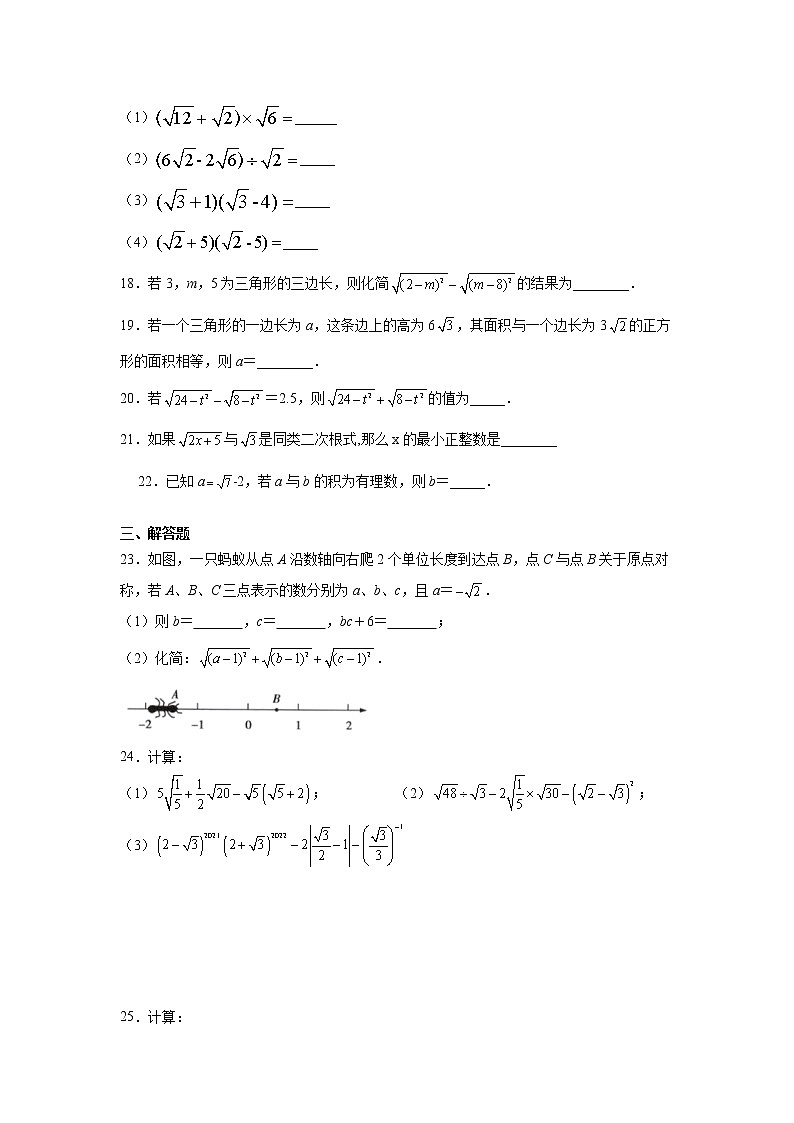 （1）(√12 + √2)×√6 =______
（2）(6√2 - 2√6)÷√2 =_____
（3）(√3 +1)(√3 - 4) =_____
（4）(√2 + 5)(√2 - 5) =_____
18．若 3，m，5 为三角形的三边长，则化简√((2−m)²) − √((m−8)²) 的结果为________．
19．若一个三角形的一边长为 a，这条边上的高为 6√3，其面积与一个边长为 3√2 的正方
形的面积相等，则 a＝________．
20．若√(24−t²) − √(8−t²)＝2.5，则√(24−t²) + √(8−t²) 的值为_____．
21．如果√(2x+5) 与√3 是同类二次根式,那么 x 的最小正整数是________
22．已知 a=√7-2，若 a 与 b 的积为有理数，则 b＝_____．
三、解答题
23．如图，一只蚂蚁从点 A 沿数轴向右爬 2 个单位长度到达点 B，点 C 与点 B 关于原点对
称，若 A、B、C 三点表示的数分别为 a、b、c，且 a＝−√2．
（1）则 b＝_______，c＝_______，bc＋6＝_______；
（2）化简：√((a−1)²) + √((b−1)²) + √((c−1)²)．
A B
−2 −1 0 1 2
24．计算：
（1）5√(1/5) + 1/2 √20 − √5(√5+2)； （2）√48÷√3−2√(1/5)×√30−(√2−√3)²；
（3）(2−√3)²⁰²¹(2+√3)²⁰²²−2|√3/2−1|−(√3/3)⁻¹
25．计算：